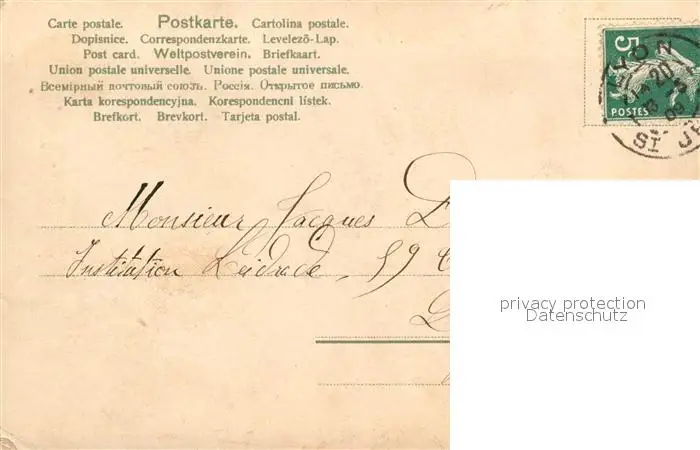 Carte postale. Postkarte. Cartolina postale.
Dopisnice. Correspondenzkarte. Levelező-Lap.
Post card. Weltpostverein. Briefkaart.
Union postale universelle. Unione postale universale.
Всемірный почтовый союзъ. Россія. Открытое письмо.
Karta korespondencyjna. Korespondenci lístek.
Brefkort. Brevkort. Tarjeta postal.
5
POSTES
LYON
20
ST
Monsieur Jacques D
Institution Leidrade, 59
privacy protection
Datenschutz